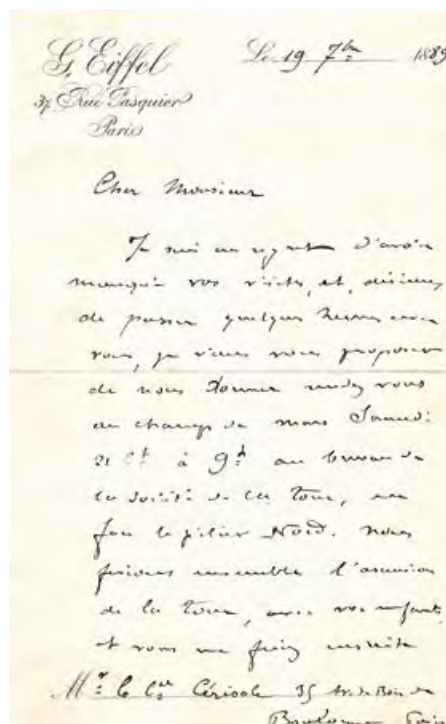 G. Eiffel
37, Rue Pasquier
Paris
Le 19 7bre 1889
Cher Monsieur
Je suis au regret d'avoir
manqué vos visites, et, désireux
de passer quelques heures avec
vous, je viens vous proposer
de nous donner rendez vous
au champ de mars Samedi
21 ct à 9h au bureau de
la société de la Tour,
le pilier Nord. Nous
ferions ensemble l'ascension
de la Tour, avec vos enfants
et vous me ferez ensuite
Mr le 35 Av. du Bois de